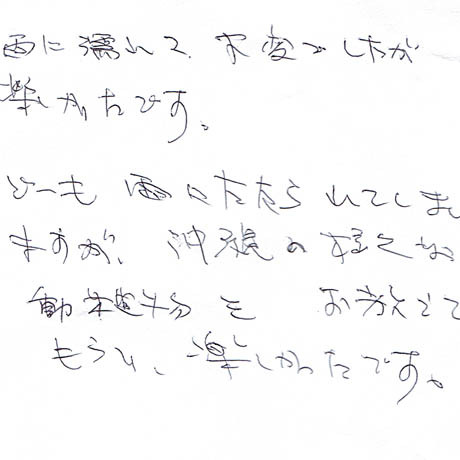 雨に濡れて、大変でしたが
楽しかったです。
どーも雨にたたられてしま
ますが、沖縄の様々な
動植物を お教えて
もらい、楽しかったです。